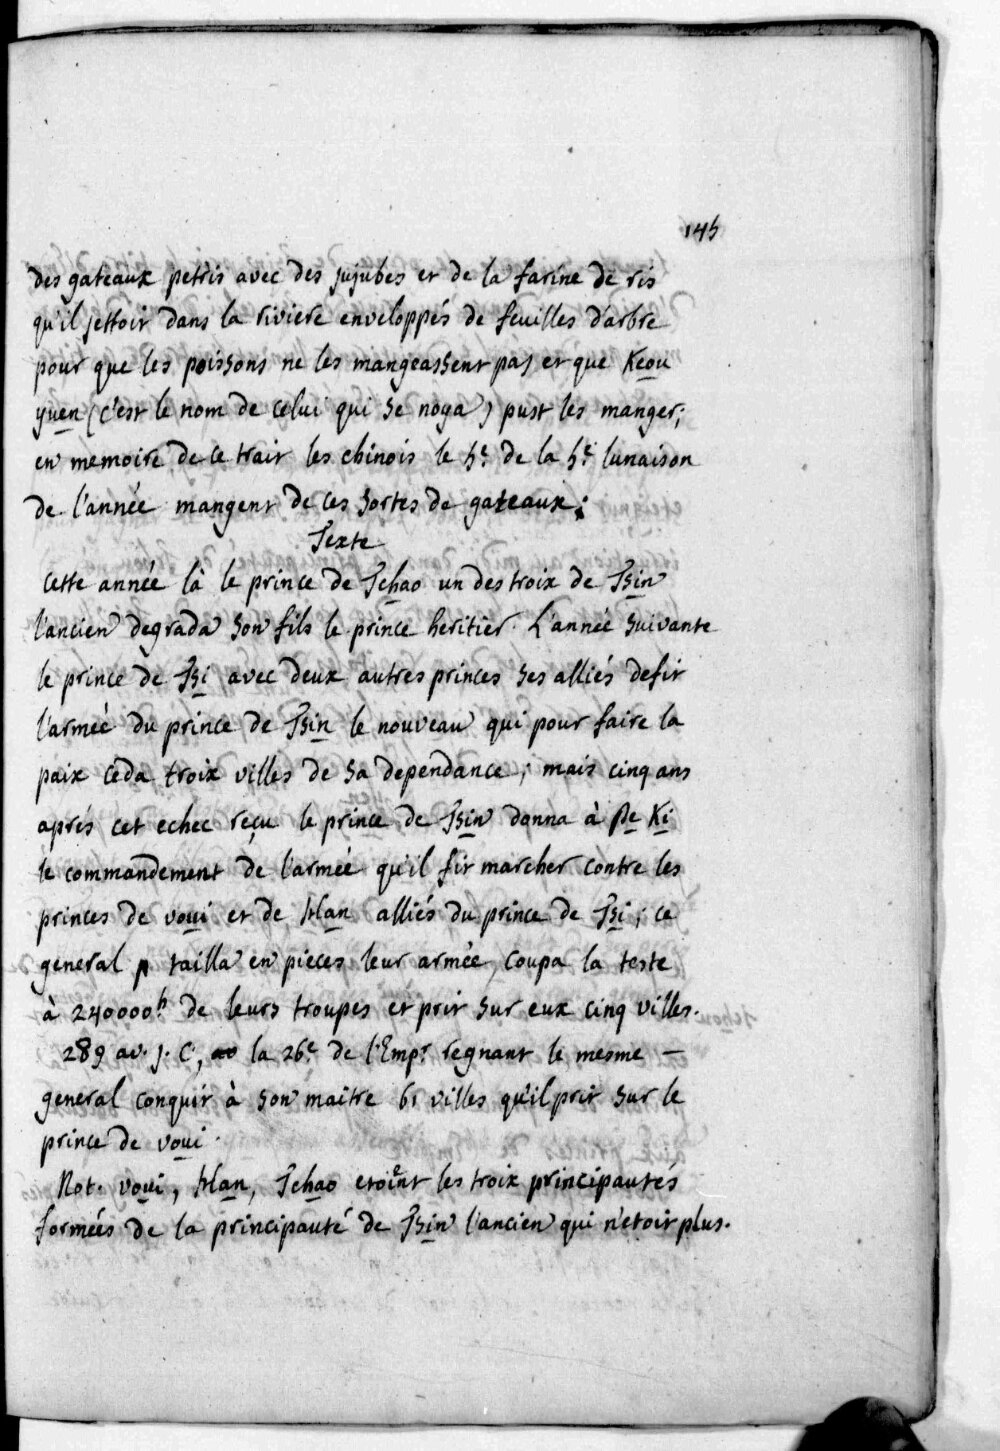 145
des gateaux petris avec des jujubes et de la farine de ris
qu'il jettoit dans la riviere enveloppés de feuilles d'arbre
pour que les poissons ne les mangeassent pas et que Keou
yuen (c'est le nom de celui qui se noya) pust les manger;
en memoire de ce trait les chinois le 5e. de la 5e. lunaison
de l'année mangent de ces sortes de gateaux;
Texte
cette année là le prince de Tchao un des troix de Tsin
l'ancien degrada son fils le prince heritier. L'année suivante
le prince de Tsi avec deux autres princes ses alliés defit
l'armée du prince de Tsin le nouveau qui pour faire la
paix ceda troix villes de sa dependance; mais cinq ans
aprés cet echec reçu le prince de Tsin donna à Pe Ki
le commandement de l'armée qu'il fit marcher contre les
princes de voui et de Han alliés du prince de Tsi; ce
general tailla en pieces leur armée, coupa la teste
à 240000h. de leurs troupes et prit sur eux cinq villes.
289 av. j. C, la 26e. de l'Empr. regnant le mesme —
general conquit à son maitre 61 villes qu'il prit sur le
prince de voui.
Not. voui, Han, Tchao etoient les troix principautés
formées de la principauté de Tsin l'ancien qui n'etoit plus.